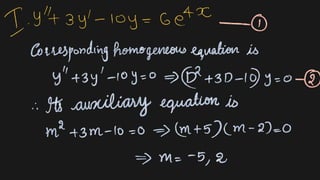 I. y'' + 3y' - 10y = 6e^{4x} —— ①
Corresponding homogeneous equation is
y'' + 3y' - 10y = 0 ⇒ (D² + 3D - 10) y = 0 - ②
∴ Its auxiliary equation is
m² + 3m - 10 = 0 ⇒ (m + 5)(m - 2) = 0
⇒ m = -5, 2